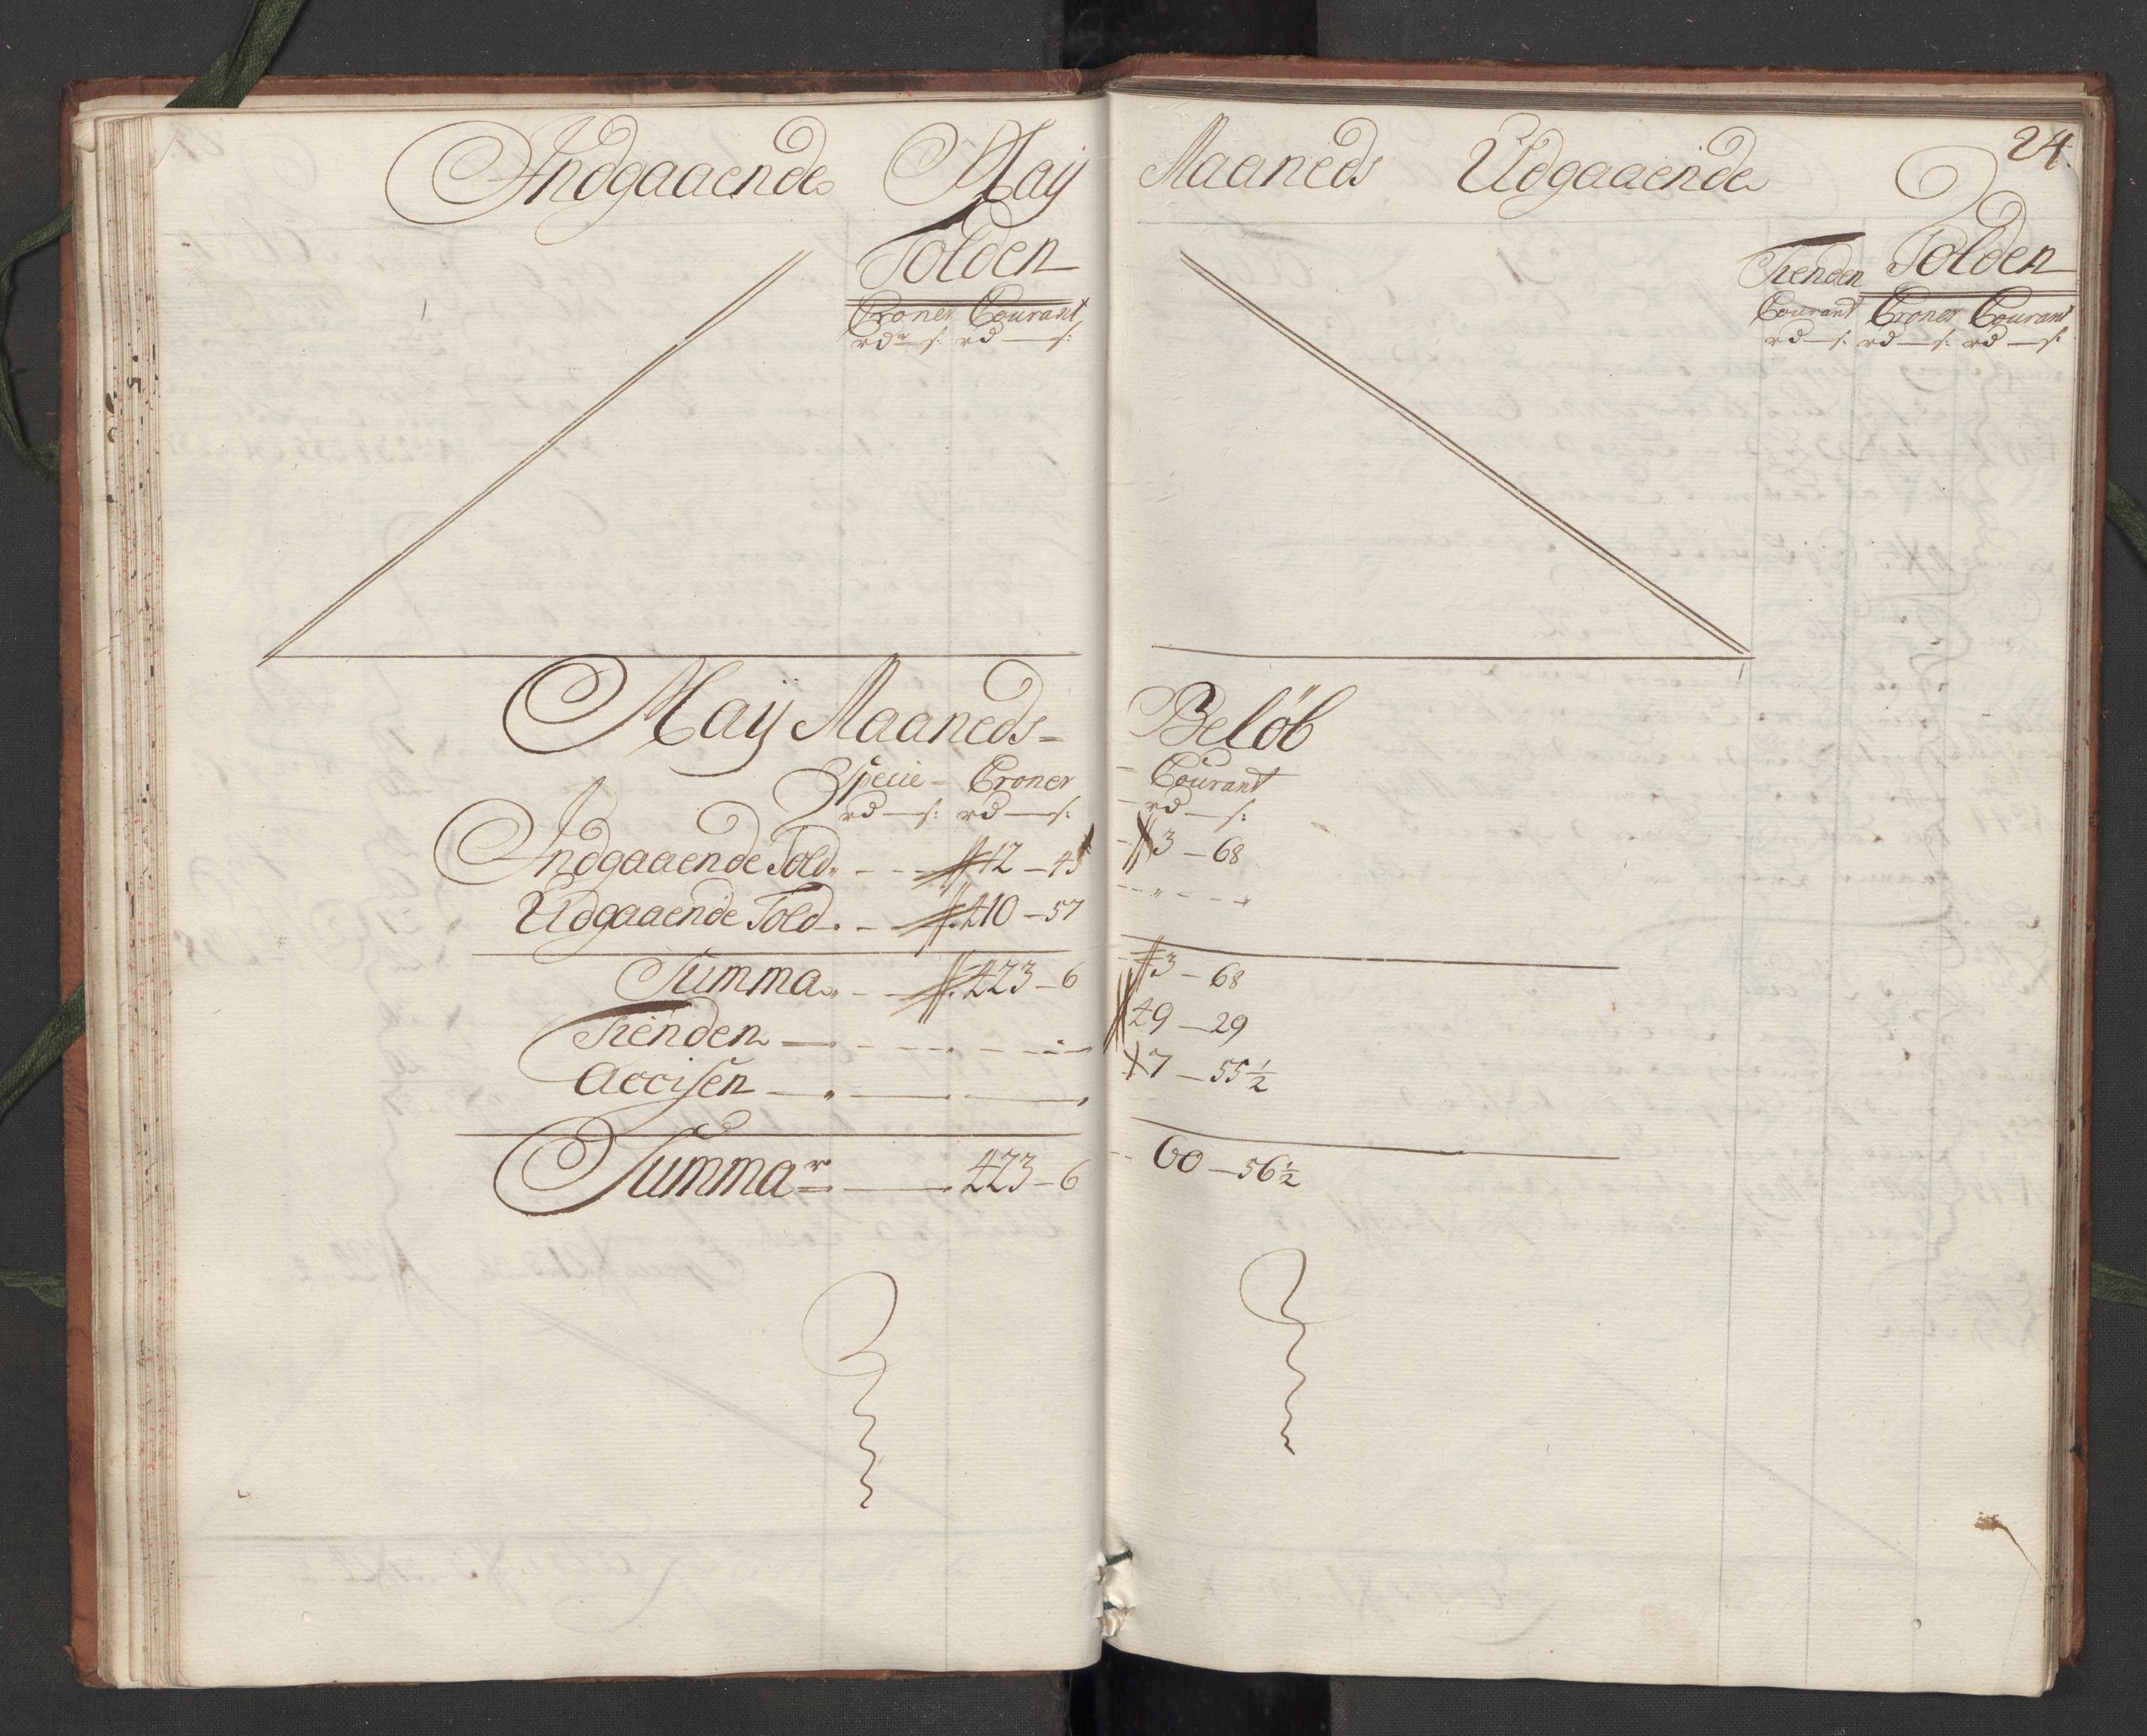 24.
Indgaaende May Maaneds Udgaaende
Tolden
Croner Courant
rdr — s: rd — s:
Tienden Tolden
Courant Croner Courant
rd — s: rd — s: rd — s:
Maij Maaneds= Beløb
Specie - Croner - Courant
rd — s: rd — s: - rd — s:
Indgaaende Told 12 - 45 3 - 68
Udgaaende Told 410 - 57
Summa 423 - 6 3 - 68
Tienden 49 - 29
Accisen 7 - 55½
Summar 423 - 6 60 - 56½